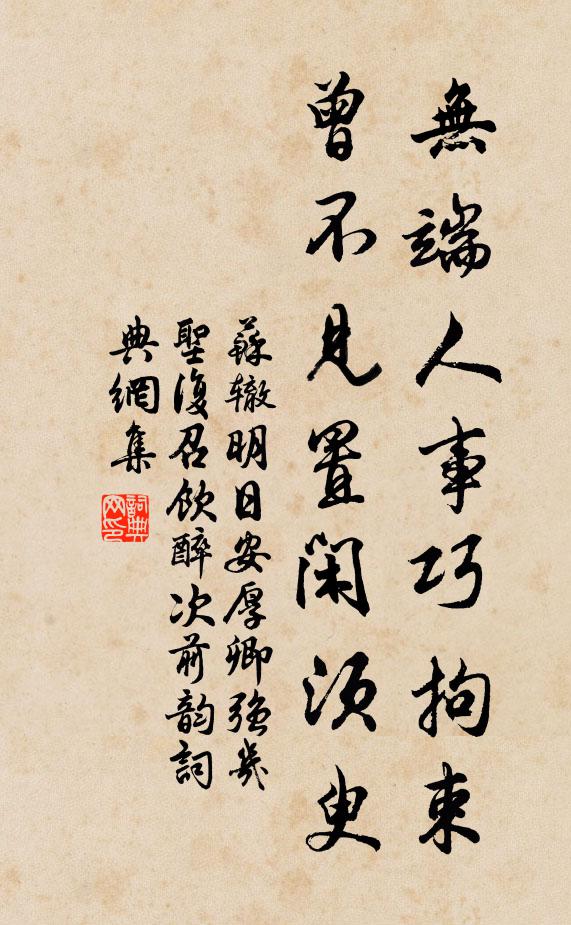 無端人事巧拘束
曾不見置閑須臾
蘇辙明日安厚卿強幾
聖復召飲醉次前韵詞
典網集
詞典
网印